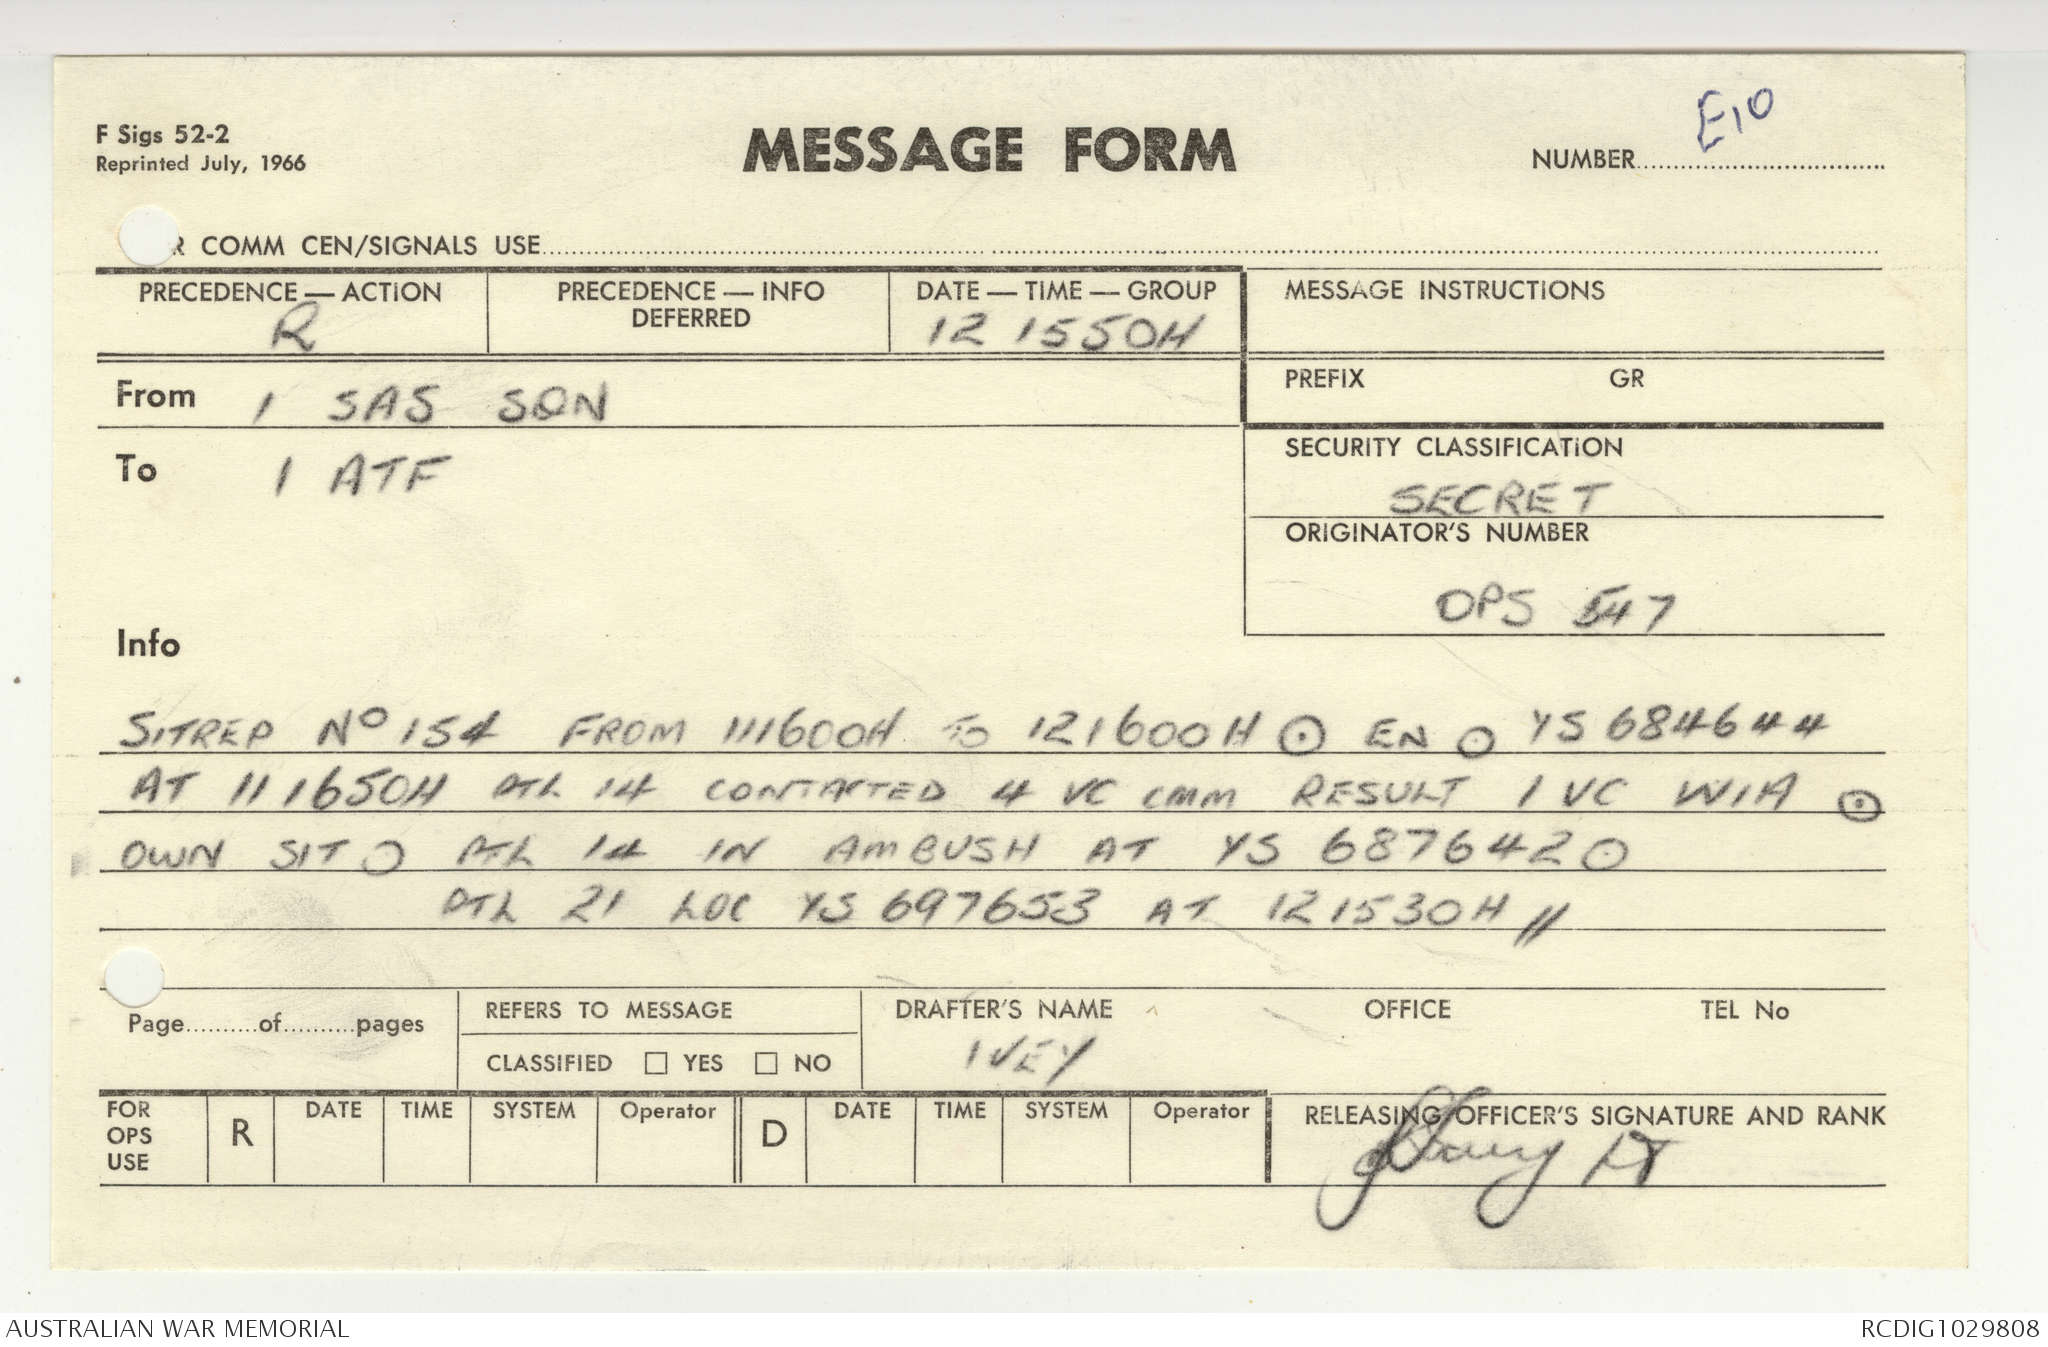 F Sigs 52-2
Reprinted July, 1966
MESSAGE FORM
E10
NUMBER
R COMM CEN/SIGNALS USE
PRECEDENCE — ACTION
R
PRECEDENCE — INFO
DEFERRED
DATE — TIME — GROUP
12 1550H
MESSAGE INSTRUCTIONS
PREFIX GR
From 1 SAS SQN
To 1 ATF
SECURITY CLASSIFICATION
SECRET
ORIGINATOR'S NUMBER
OPS 547
Info
SITREP No 154 FROM 111600H TO 121600H ⊙ EN ⊙ YS 684644
AT 111650H PTL 14 CONTACTED 4 VC CMM RESULT 1 VC WIA ⊙
OWN SIT ⊙ PTL 14 IN AMBUSH AT YS 687642 ⊙
PTL 21 LOC YS 697653 AT 121530H //
Page..........of..........pages
REFERS TO MESSAGE
CLASSIFIED ☐ YES ☐ NO
DRAFTER'S NAME
IVEY
OFFICE
TEL No
FOR
OPS
USE
R
DATE TIME SYSTEM Operator
D
DATE TIME SYSTEM Operator
RELEASING OFFICER'S SIGNATURE AND RANK
AUSTRALIAN WAR MEMORIAL
RCDIG1029808